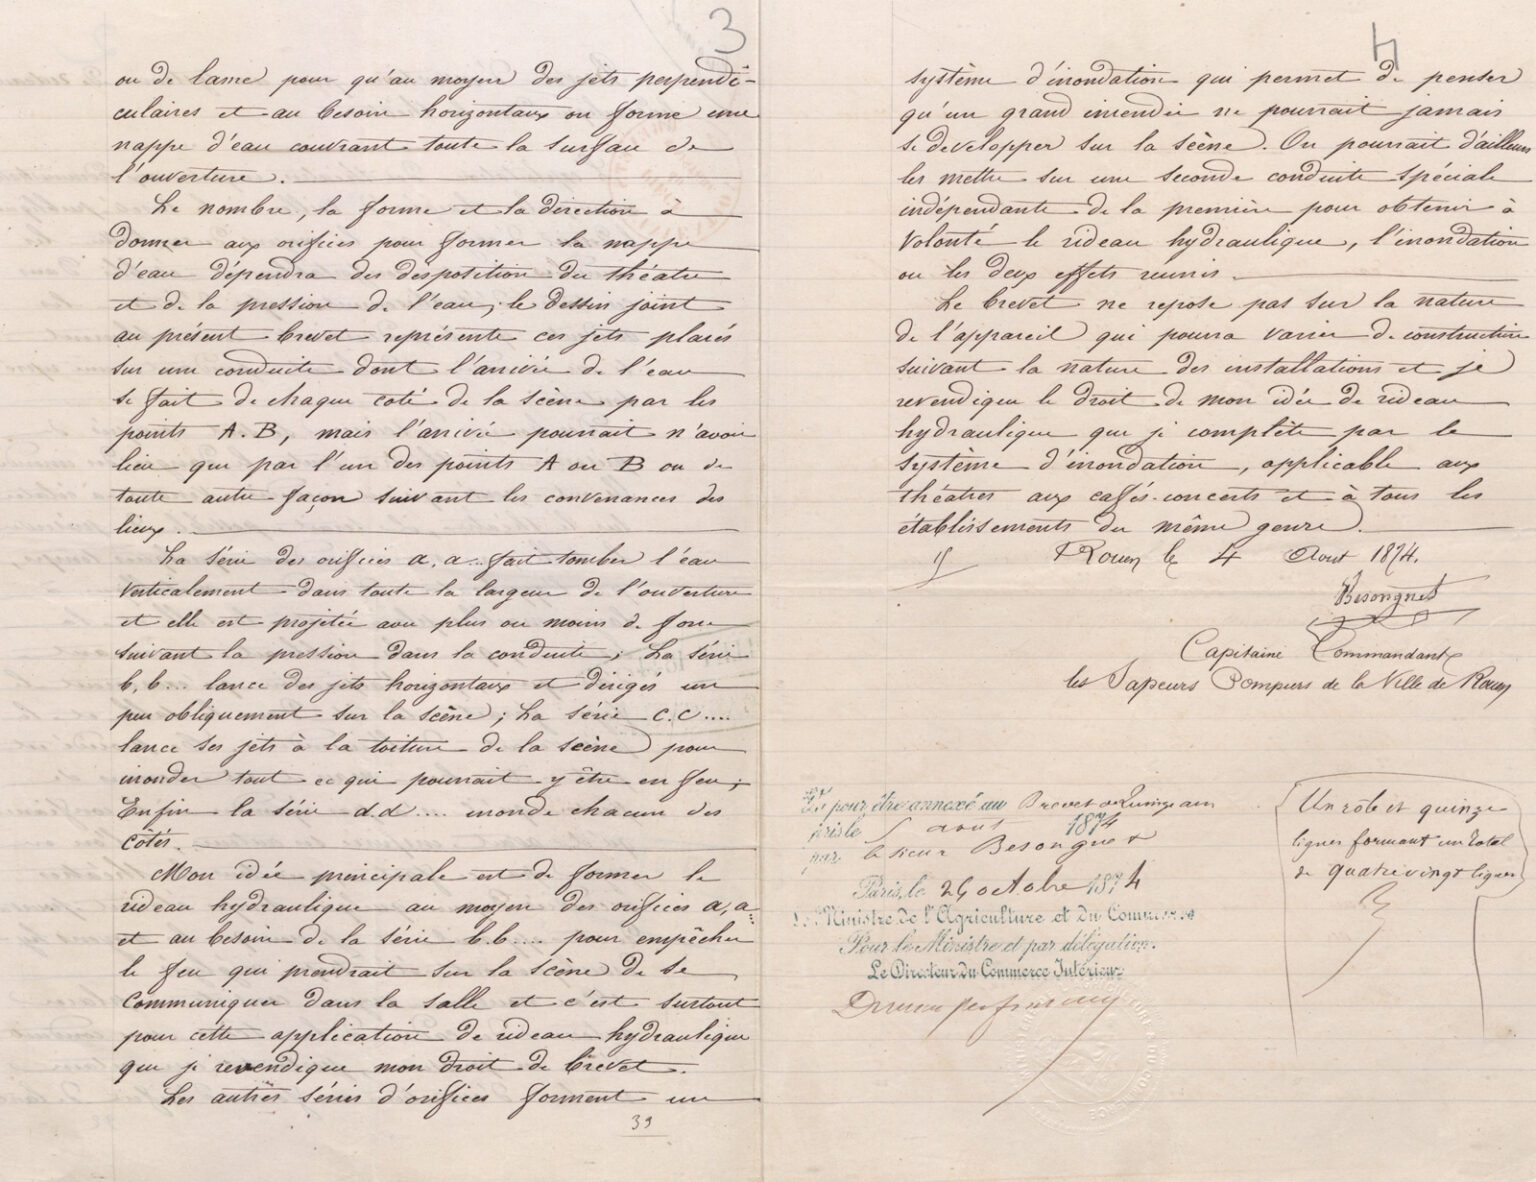 3
ou de lame pour qu'au moyen des jets perpendi-
culaires et au besoin horizontaux on forme une
nappe d'eau couvrant toute la surface de
l'ouverture.
Le nombre, la forme et la direction à
donner aux orifices pour former la nappe
d'eau dépendra des desposition du théatre
et de la pression de l'eau; le dessin joint
au présent brevet représente ces jets placés
sur une conduite dont l'arrivée de l'eau
se fait de chaque coté de la scène par les
points A.B, mais l'arrivée pourrait n'avoir
lieu que par l'un des points A ou B ou de
toute autre façon suivant les convenances des
lieux.
La série des orifices a, a.. fait tomber l'eau
verticalement dans toute la largeur de l'ouverture
et elle est projetée avec plus ou moins de force
suivant la pression dans la conduite; La série
b, b... lance des jets horizontaux et dirigés un
peu obliquement sur la scène; La série c.c....
lance ses jets à la toiture de la scène pour
inonder tout ce qui pourrait y être en feu;
Enfin la série d.d.... inonde chacun des
côtés.
Mon idée principale est de former le
rideau hydraulique au moyen des orifices a, a
et au besoin de la série b.b.... pour empêcher
le feu qui prendrait sur la scène de se
communiquer dans la salle et c'est surtout
pour cette application de rideau hydraulique
que je revendique mon droit de brevet.
Les autres séries d'orifices forment un
39
4
système d'inondation qui permet de penser
qu'un grand incendie ne pourrait jamais
se developper sur la scène. On pourrait d'ailleurs
les mettre sur une seconde conduite spéciale
indépendante de la première pour obtenir à
volonté le rideau hydraulique, l'inondation
ou les deux effets reunis.
Le brevet ne repose pas sur la nature
de l'appareil qui pourra varier de construction
suivant la nature des installations et je
revendique le droit de mon idée de rideau
hydraulique que je complète par le
système d'inondation, applicable aux
théatres aux cafés-concerts et à tous les
établissements du même genre.
Rouen le 4 Aout 1874.
Besongnet
Capitaine Commandant
les Sapeurs Pompiers de la Ville de Rouen
Vu pour être annexé au Brevet de Quinze ans
pris le 5 aout 1874
par le sieur Besongnet
Paris, le 26 octobre 1874
Le Ministre de l'Agriculture et du Commerce
Pour le Ministre et par délégation.
Le Directeur du Commerce Intérieur
Un rôle et quinze
lignes formant un total
de quatre vingt lignes